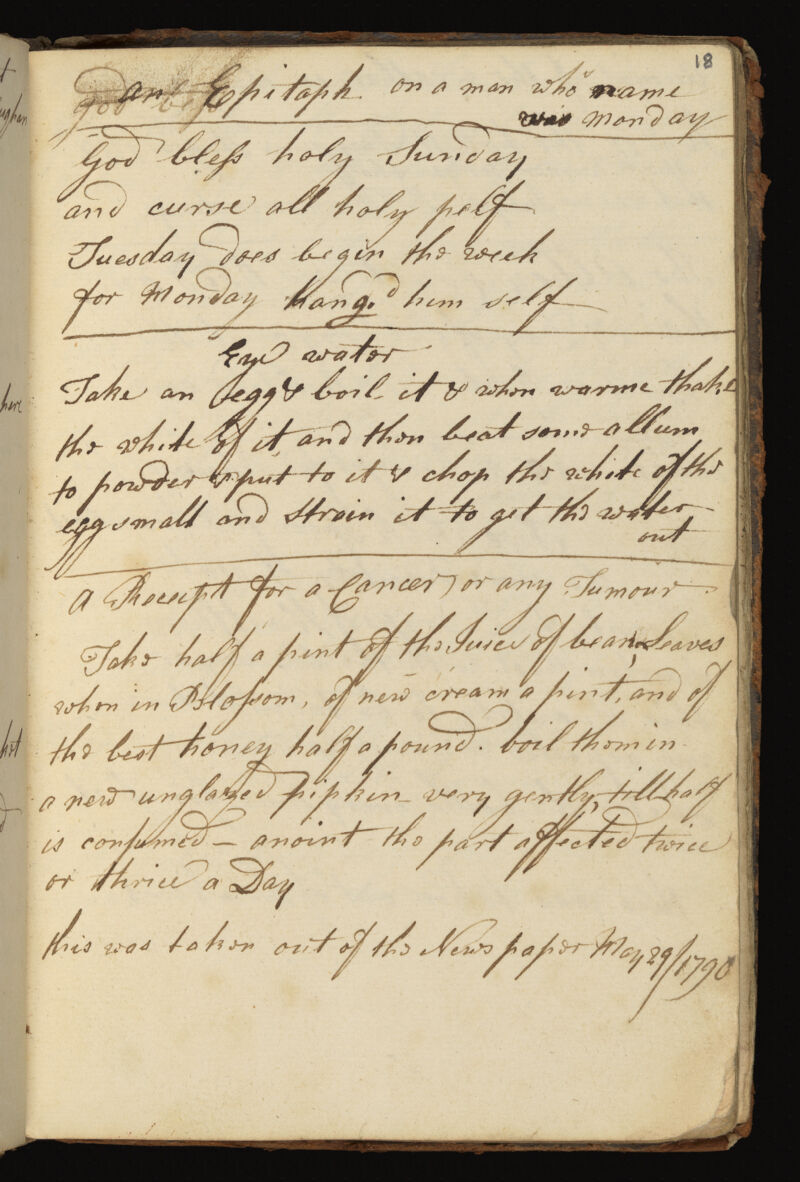 18
an Epitaph on a man who name
was Monday
God bless holy Sunday
and curse all holy pelf
Tuesday does begin the week
for Monday hang.d him self
Eye water
Take an egg & boil it & when warme thake
the white of it and then beat some allum
to powder & put to it & chop the white of the
egg small and strain it to get the water
out
a Receipt for a Cancer, or any Tumour.
Take half a pint of the Juice of bean Leaves
when in Blossom, of new cream a pint, and of
the best honey half a pound. boil them in
a new unglazed pipkin very gently, till half
is consumed – anoint the part affected twice
or thrice a Day
this was taken out of the News paper May 29/1790